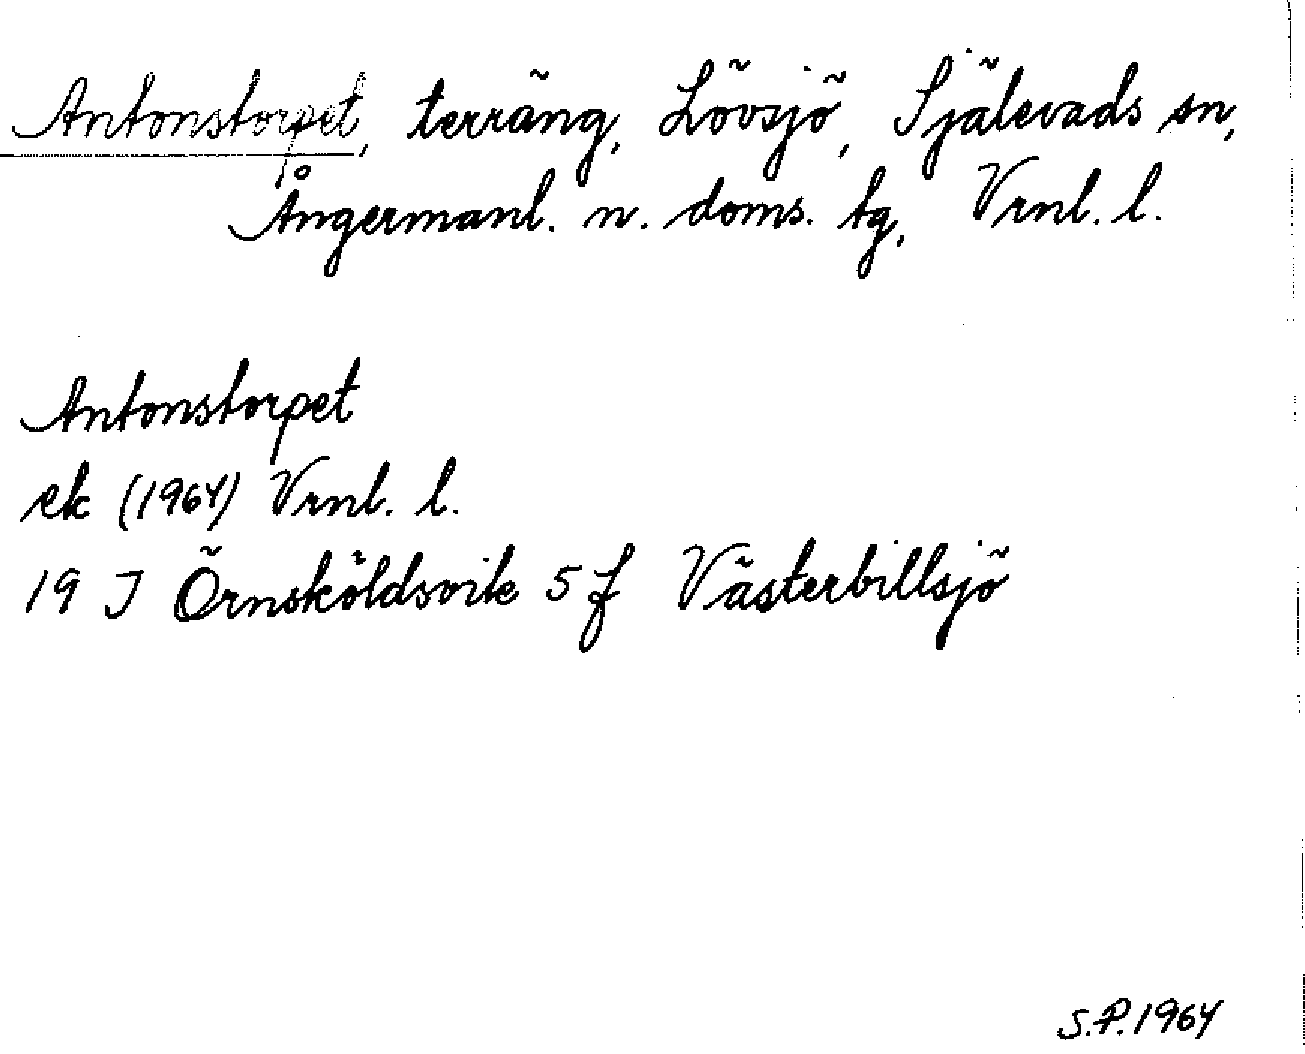 Antonstorpet, terräng, Lövsjö, Själevads sn,
Ångermanl. n. doms. tg, Vrnl. l.
Antonstorpet
ek (1964) Vrnl. l.
19 J Örnsköldsvik 5 f Västerbillsjö
S.P. 1964